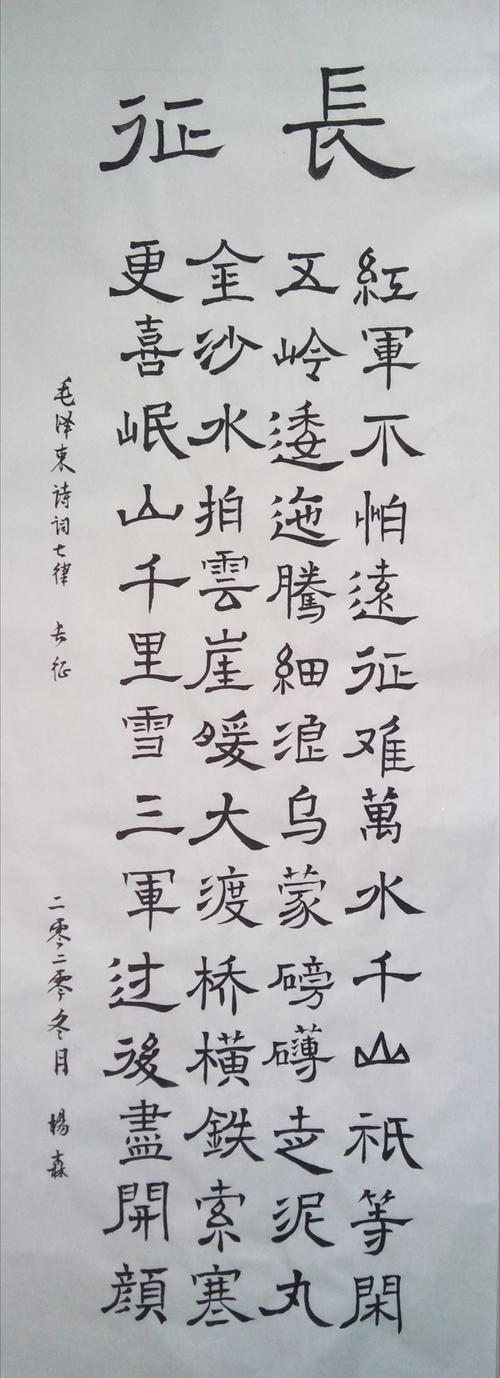 長征
紅軍不怕遠征难萬水千山祇等閑
五岭逶迤騰細浪乌蒙磅礴走泥丸
金沙水拍雲崖暖大渡桥横鉄索寒
更喜岷山千里雪三軍过後盡開顔
毛泽东诗词七律 长征
二零二零冬月 楊森